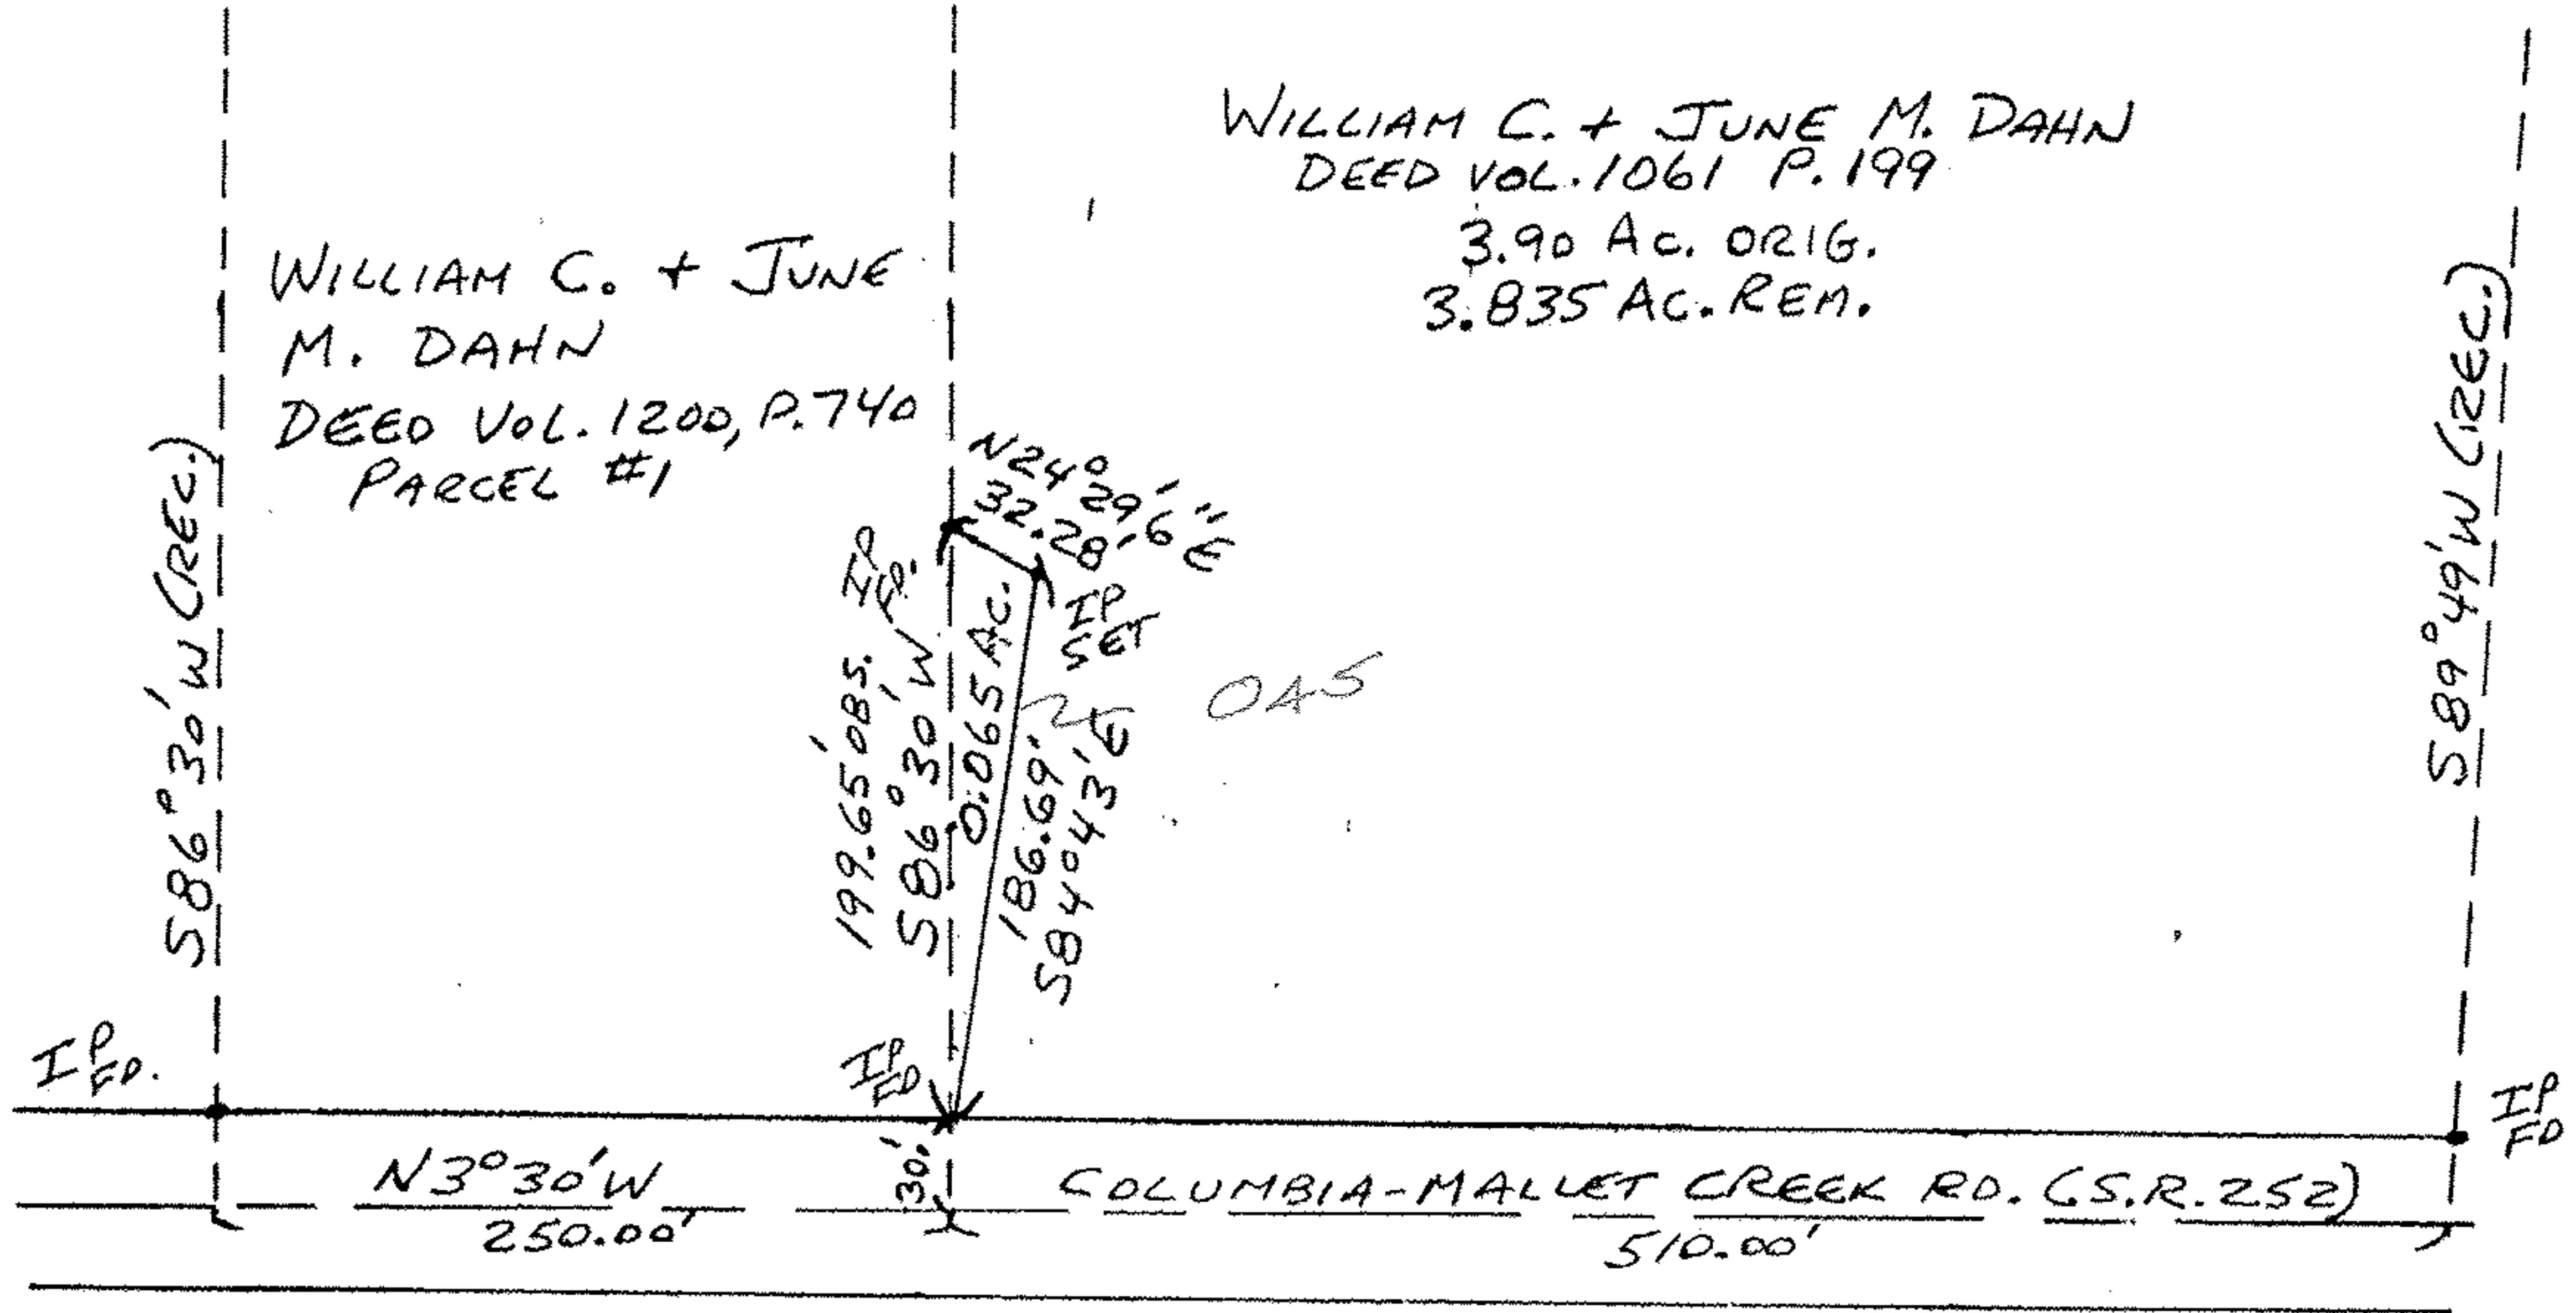 WILLIAM C. + JUNE M. DAHN
DEED VOL. 1061 P. 199
3.90 AC. ORIG.
3.835 AC. REM.
WILLIAM C. + JUNE
M. DAHN
DEED VOL. 1200, P. 740
PARCEL #1
S 86° 30' W (REC.)
N 24° 29' 6" E
32.28'
IP FD.
IP SET
199.65' OBS.
S 86° 30' W
0.065 AC.
186.69'
S 84° 43' E
045
S 89° 49' W (REC.)
IP FD.
IP FD
IP FD
30.'
N 3° 30' W
250.00'
COLUMBIA-MALLET CREEK RD. (S.R. 252)
510.00'